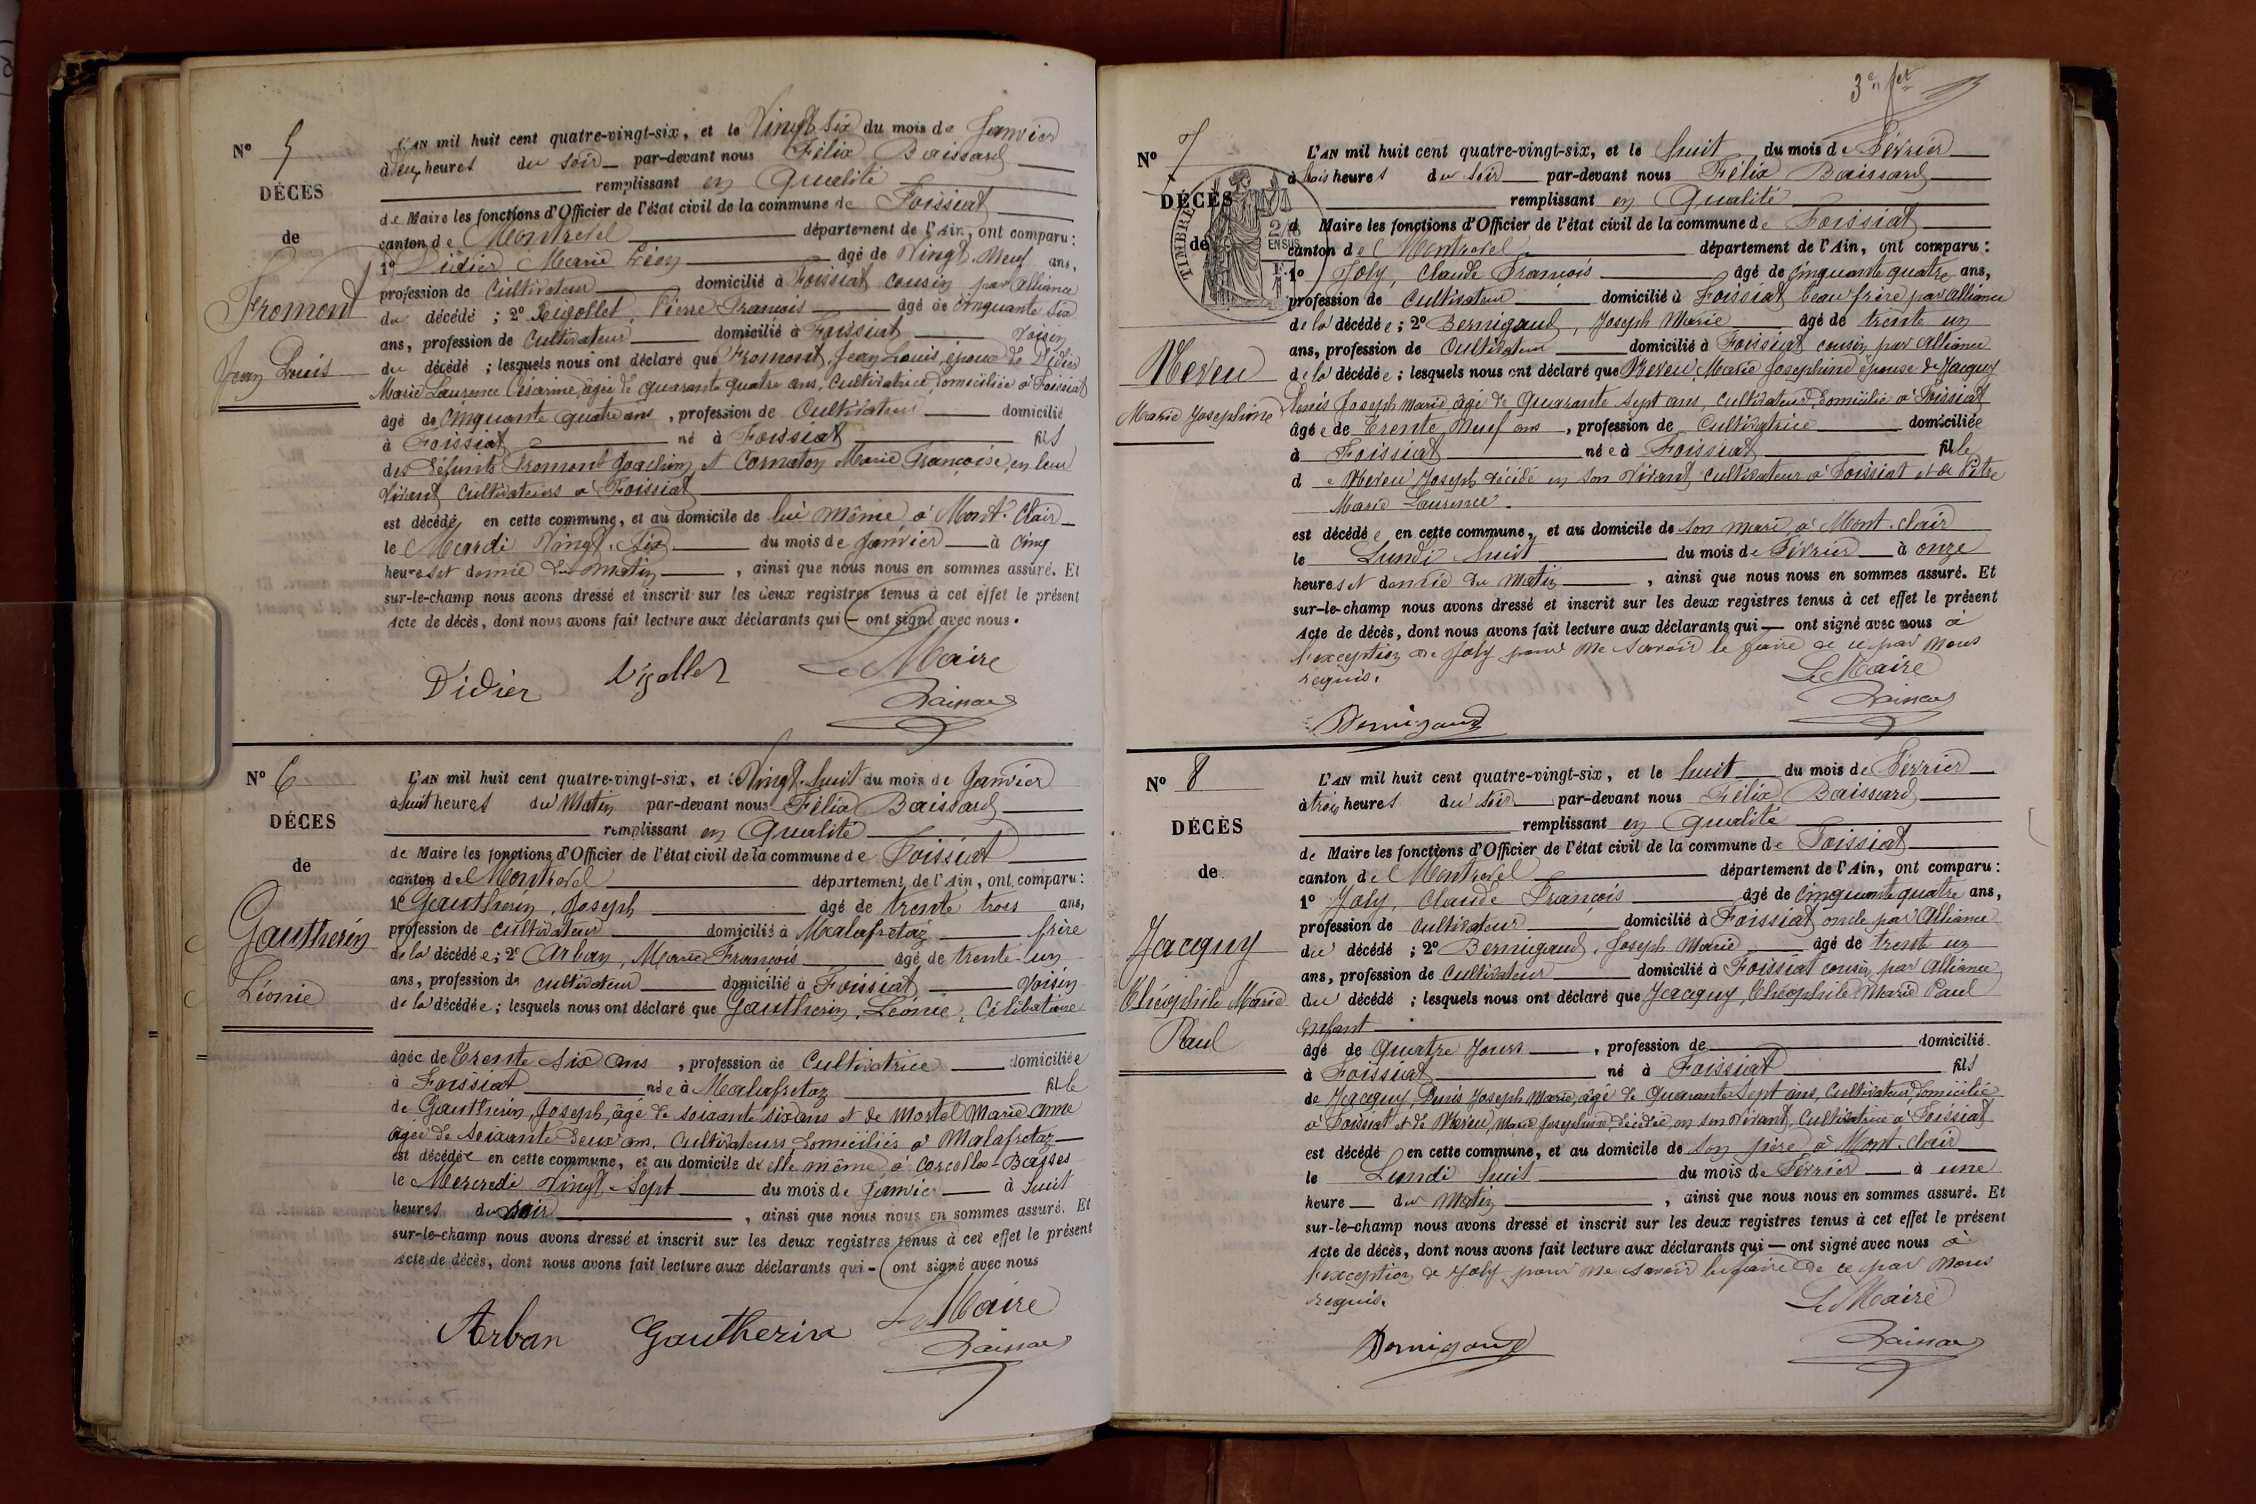 N° 5
DÉCES
de
Fromont
Jean Louis
L'AN mil huit cent quatre-vingt-six, et le Vingt six du mois de Janvier
à deux heures du soir par-devant nous Félix Baissard
remplissant en Qualité
de Maire les fonctions d'Officier de l'état civil de la commune de Foissiat
canton de Montrevel département de l'Ain, ont comparu :
1° Didier Marie Léon âgé de Vingt-Neuf ans,
profession de Cultivateur domicilié à Foissiat cousin par alliance
du décédé ; 2° Rigollet, Pierre François âgé de Cinquante six
ans, profession de Cultivateur domicilié à Foissiat Voisin
du décédé ; lesquels nous ont déclaré que Fromont, Jean Louis, époux de Didier
Marie Laurence Césarine, âgée de quarante quatre ans, Cultivatrice, domiciliée à Foissiat
âgé de Cinquante quatre ans, profession de Cultivateur domicilié
à Foissiat né à Foissiat fils
des défunts Fromont Joachim et Cornaton Marie Françoise, en leur
Vivant Cultivateurs à Foissiat
est décédé en cette commune, et au domicile de lui même à Mont-Clair
le Mardi Vingt-Six du mois de Janvier à Cinq
heures et demie du matin, ainsi que nous nous en sommes assuré. Et
sur-le-champ nous avons dressé et inscrit sur les deux registres tenus à cet effet le présent
Acte de décès, dont nous avons fait lecture aux déclarants qui — ont signé avec nous.
Didier Rigollet Le Maire
Baissard
N° 6
DÉCES
de
Gautherin
Léonie
L'AN mil huit cent quatre-vingt-six, et le Vingt-huit du mois de Janvier
à huit heures du Matin par-devant nous Félix Baissard
remplissant en Qualité
de Maire les fonctions d'Officier de l'état civil de la commune de Foissiat
canton de Montrevel département de l'Ain, ont comparu :
1° Gautherin, Joseph âgé de trente trois ans,
profession de Cultivateur domicilié à Malafretaz frère
de la décédée ; 2° Arban, Marie François âgé de trente-un
ans, profession de cultivateur domicilié à Foissiat Voisin
de la décédée ; lesquels nous ont déclaré que Gautherin, Léonie, Célibataire
âgée de Trente Six ans, profession de Cultivatrice domiciliée
à Foissiat née à Malafretaz fille
de Gautherin, Joseph, âgé de soixante six ans et de Mortel Marie Anne
âgée de soixante deux ans, Cultivateurs domiciliés à Malafretaz
est décédée en cette commune, et au domicile de elle même à Corcelles-Basses
le Mercredi Vingt-Sept du mois de Janvier à huit
heures du soir, ainsi que nous nous en sommes assuré. Et
sur-le-champ nous avons dressé et inscrit sur les deux registres tenus à cet effet le présent
Acte de décès, dont nous avons fait lecture aux déclarants qui - ont signé avec nous
Arban Gautherin Le Maire
Baissard
3e fet
N° 7
DÉCES
de
TIMBRE
2/10
EN SUS
Neveu
Marie Josephine
L'AN mil huit cent quatre-vingt-six, et le huit du mois de Février
à trois heures du soir par-devant nous Félix Baissard
remplissant en Qualité
d Maire les fonctions d'Officier de l'état civil de la commune de Foissiat
canton de Montrevel département de l'Ain, ont comparu :
1° Joly, Claude François âgé de Cinquante quatre ans,
profession de Cultivateur domicilié à Foissiat beau frère par alliance
de la décédée ; 2° Bernigaud, Joseph Marie âgé de trente un
ans, profession de Cultivateur domicilié à Foissiat cousin par alliance
de la décédée ; lesquels nous ont déclaré que Neveu, Marie Josephine épouse de Jacquy
Denis Joseph Marie âgé de Quarante Sept ans, Cultivateur, domicilié à Foissiat
âgée de Trente Neuf ans, profession de Cultivatrice domiciliée
à Foissiat née à Foissiat fille
de Neveu Joseph décédé en son Vivant, cultivateur à Foissiat et de Pitre
Marie Laurence.
est décédée en cette commune, et au domicile de son mari à Mont-clair
le Lundi huit du mois de Février à onze
heures et demie du Matin, ainsi que nous nous en sommes assuré. Et
sur-le-champ nous avons dressé et inscrit sur les deux registres tenus à cet effet le présent
Acte de décès, dont nous avons fait lecture aux déclarants qui — ont signé avec nous à
l'exception de Joly pour ne savoir le faire de ce par Nous
requis.
Le Maire
Bernigaud Baissard
N° 8
DÉCÈS
de
Jacquy
Théophile Marie
Paul
L'AN mil huit cent quatre-vingt-six, et le huit du mois de Février
à trois heures du soir par-devant nous Félix Baissard
remplissant en Qualité
de Maire les fonctions d'Officier de l'état civil de la commune de Foissiat
canton de Montrevel département de l'Ain, ont comparu :
1° Joly, Claude François âgé de Cinquante quatre ans,
profession de cultivateur domicilié à Foissiat oncle par Alliance
du décédé ; 2° Bernigaud, Joseph Marie âgé de trente un
ans, profession de Cultivateur domicilié à Foissiat cousin par Alliance
du décédé ; lesquels nous ont déclaré que Jacquy, Théophile Marie Paul
Enfant
âgé de Quatre Jours, profession de domicilié
à Foissiat né à Foissiat fils
de Jacquy, Denis Joseph Marie, âgé de Quarante-Sept ans, Cultivateur, domicilié
à Foissiat et de Neveu, Marie Josephine décédée, en son Vivant, Cultivatrice à Foissiat
est décédé en cette commune, et au domicile de son père à Mont-clair
le Lundi huit du mois de Février à une
heure du Matin, ainsi que nous nous en sommes assuré. Et
sur-le-champ nous avons dressé et inscrit sur les deux registres tenus à cet effet le présent
Acte de décès, dont nous avons fait lecture aux déclarants qui — ont signé avec nous à
l'exception de Joly pour ne savoir le faire de ce par Nous
requis.
Le Maire
Bernigaud Baissard